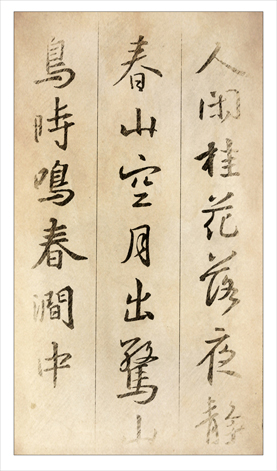 人閑桂花落夜靜
春山空月出驚山
鳥時鳴春澗中